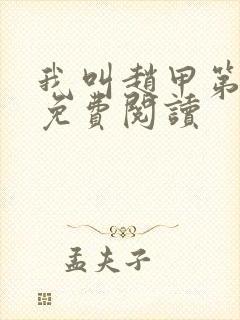 我叫趙甲第
免費閱讀
孟夫子